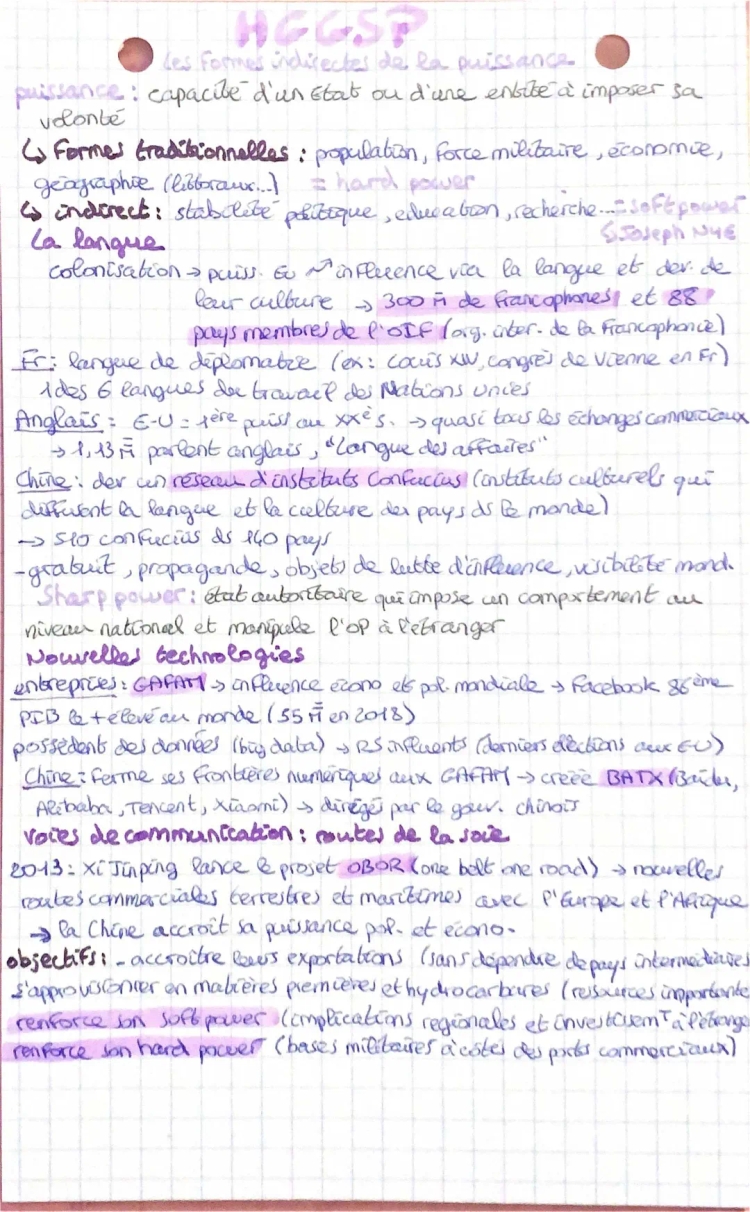 HGGSP
Les formes indirectes de la puissance
puissance : capacité d'un état ou d'une entité à imposer sa
volonté
↳ Formes traditionnelles : population, force militaire, économie,
géographie (littoraux...) = hard power
↳ indirect : stabilité politique, education, recherche... = soft power
↳ Joseph NYE
La langue
colonisation → puiss. Eu ↗ influence via la langue et dev. de
leur culture → 300 M de francophones et 88
pays membres de l'OIF (org. inter. de la Francophonie)
Fr : langue de diplomatie (ex : Louis XIV, congrès de Vienne en Fr)
1 des 6 langues de travail des Nations unies
Anglais : E-U = 1ère puiss au XXè s. → quasi tous les échanges commerciaux
→ 1,13 M parlent anglais, "langue des affaires"
Chine : dev un réseau d'instituts Confucius (instituts culturels qui
diffusent la langue et la culture des pays ds le monde)
→ 510 confucius ds 140 pays
- gratuit, propagande, objets de lutte d'influence, visibilité mond.
Sharp power : état autoritaire qui impose un comportement au
niveau national et manipule l'OP à l'étranger
Nouvelles technologies
entreprises : GAFAM → influence écono et pol. mondiale → Facebook 86ème
PIB le + élevé au monde (55 M en 2018)
possèdent des données (big data) → RS influents (derniers élections aux EU)
Chine : ferme ses frontières numériques aux GAFAM → créée BATX (Baidu,
Alibaba, Tencent, Xiaomi) → dirigés par le gouv. chinois
Voies de communication : routes de la soie
2013 : Xi Jinping lance le projet OBOR (one belt one road) → nouvelles
routes commerciales terrestres et maritimes avec l'Europe et l'Afrique
→ la Chine accroît sa puissance pol. et écono.
objectifs : - accroître leurs exportations (sans dépendre de pays intermédiaires
s'approvisionner en matières premières et hydrocarbures (ressources importante
renforce son soft power (implications régionales et investissemᵀ à l'étrange
renforce son hard power (bases militaires à côtés des ports commerciaux)